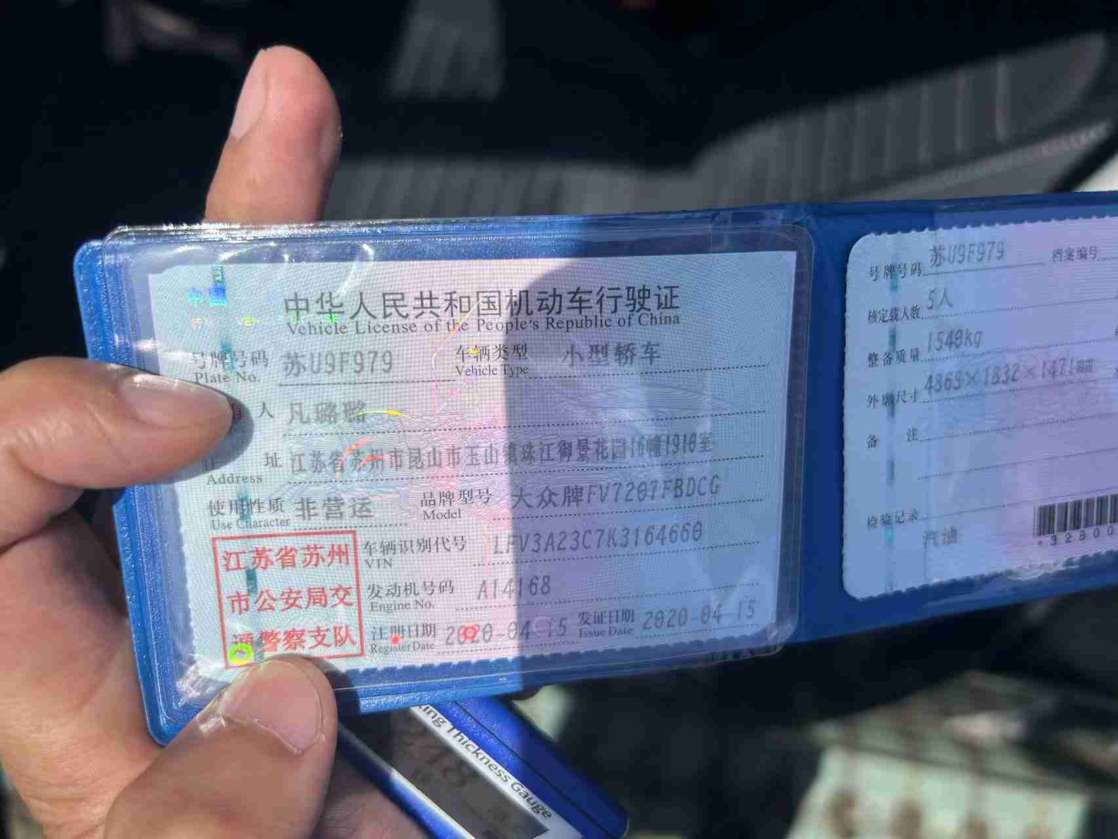 中华人民共和国机动车行驶证
Vehicle License of the People's Republic of China
号牌号码 苏U9F979 车辆类型 小型轿车
Plate No. Vehicle Type
人 凡璐璐
址 江苏省苏州市昆山市玉山镇珠江御景花园16幢1910室
Address
使用性质 非营运 品牌型号 大众牌FV7207FBDCG
Use Character Model
江苏省苏州
市公安局交
通警察支队
车辆识别代号 LFV3A23C7K3164660
VIN
发动机号码 A14168
Engine No.
注册日期 2020-04-15 发证日期 2020-04-15
Register Date Issue Date
号牌号码 苏U9F979 档案编号
核定载人数 5人
整备质量 1540kg
外廓尺寸 4869×1832×1471
备 注
检验记录
汽油
Thickness Gauge